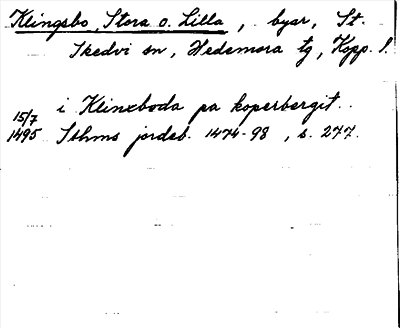 Klingsbo, Stora o. Lilla, byar, St.
Skedvi sn, Hedemora tg, Kopp. l.
i Klinxboda pa koperbergit.
15/7 1495 Sthms jordeb. 1474-98, s. 277.